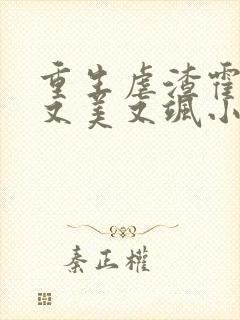 重生虐渣霍
又美又飒小
秦正權